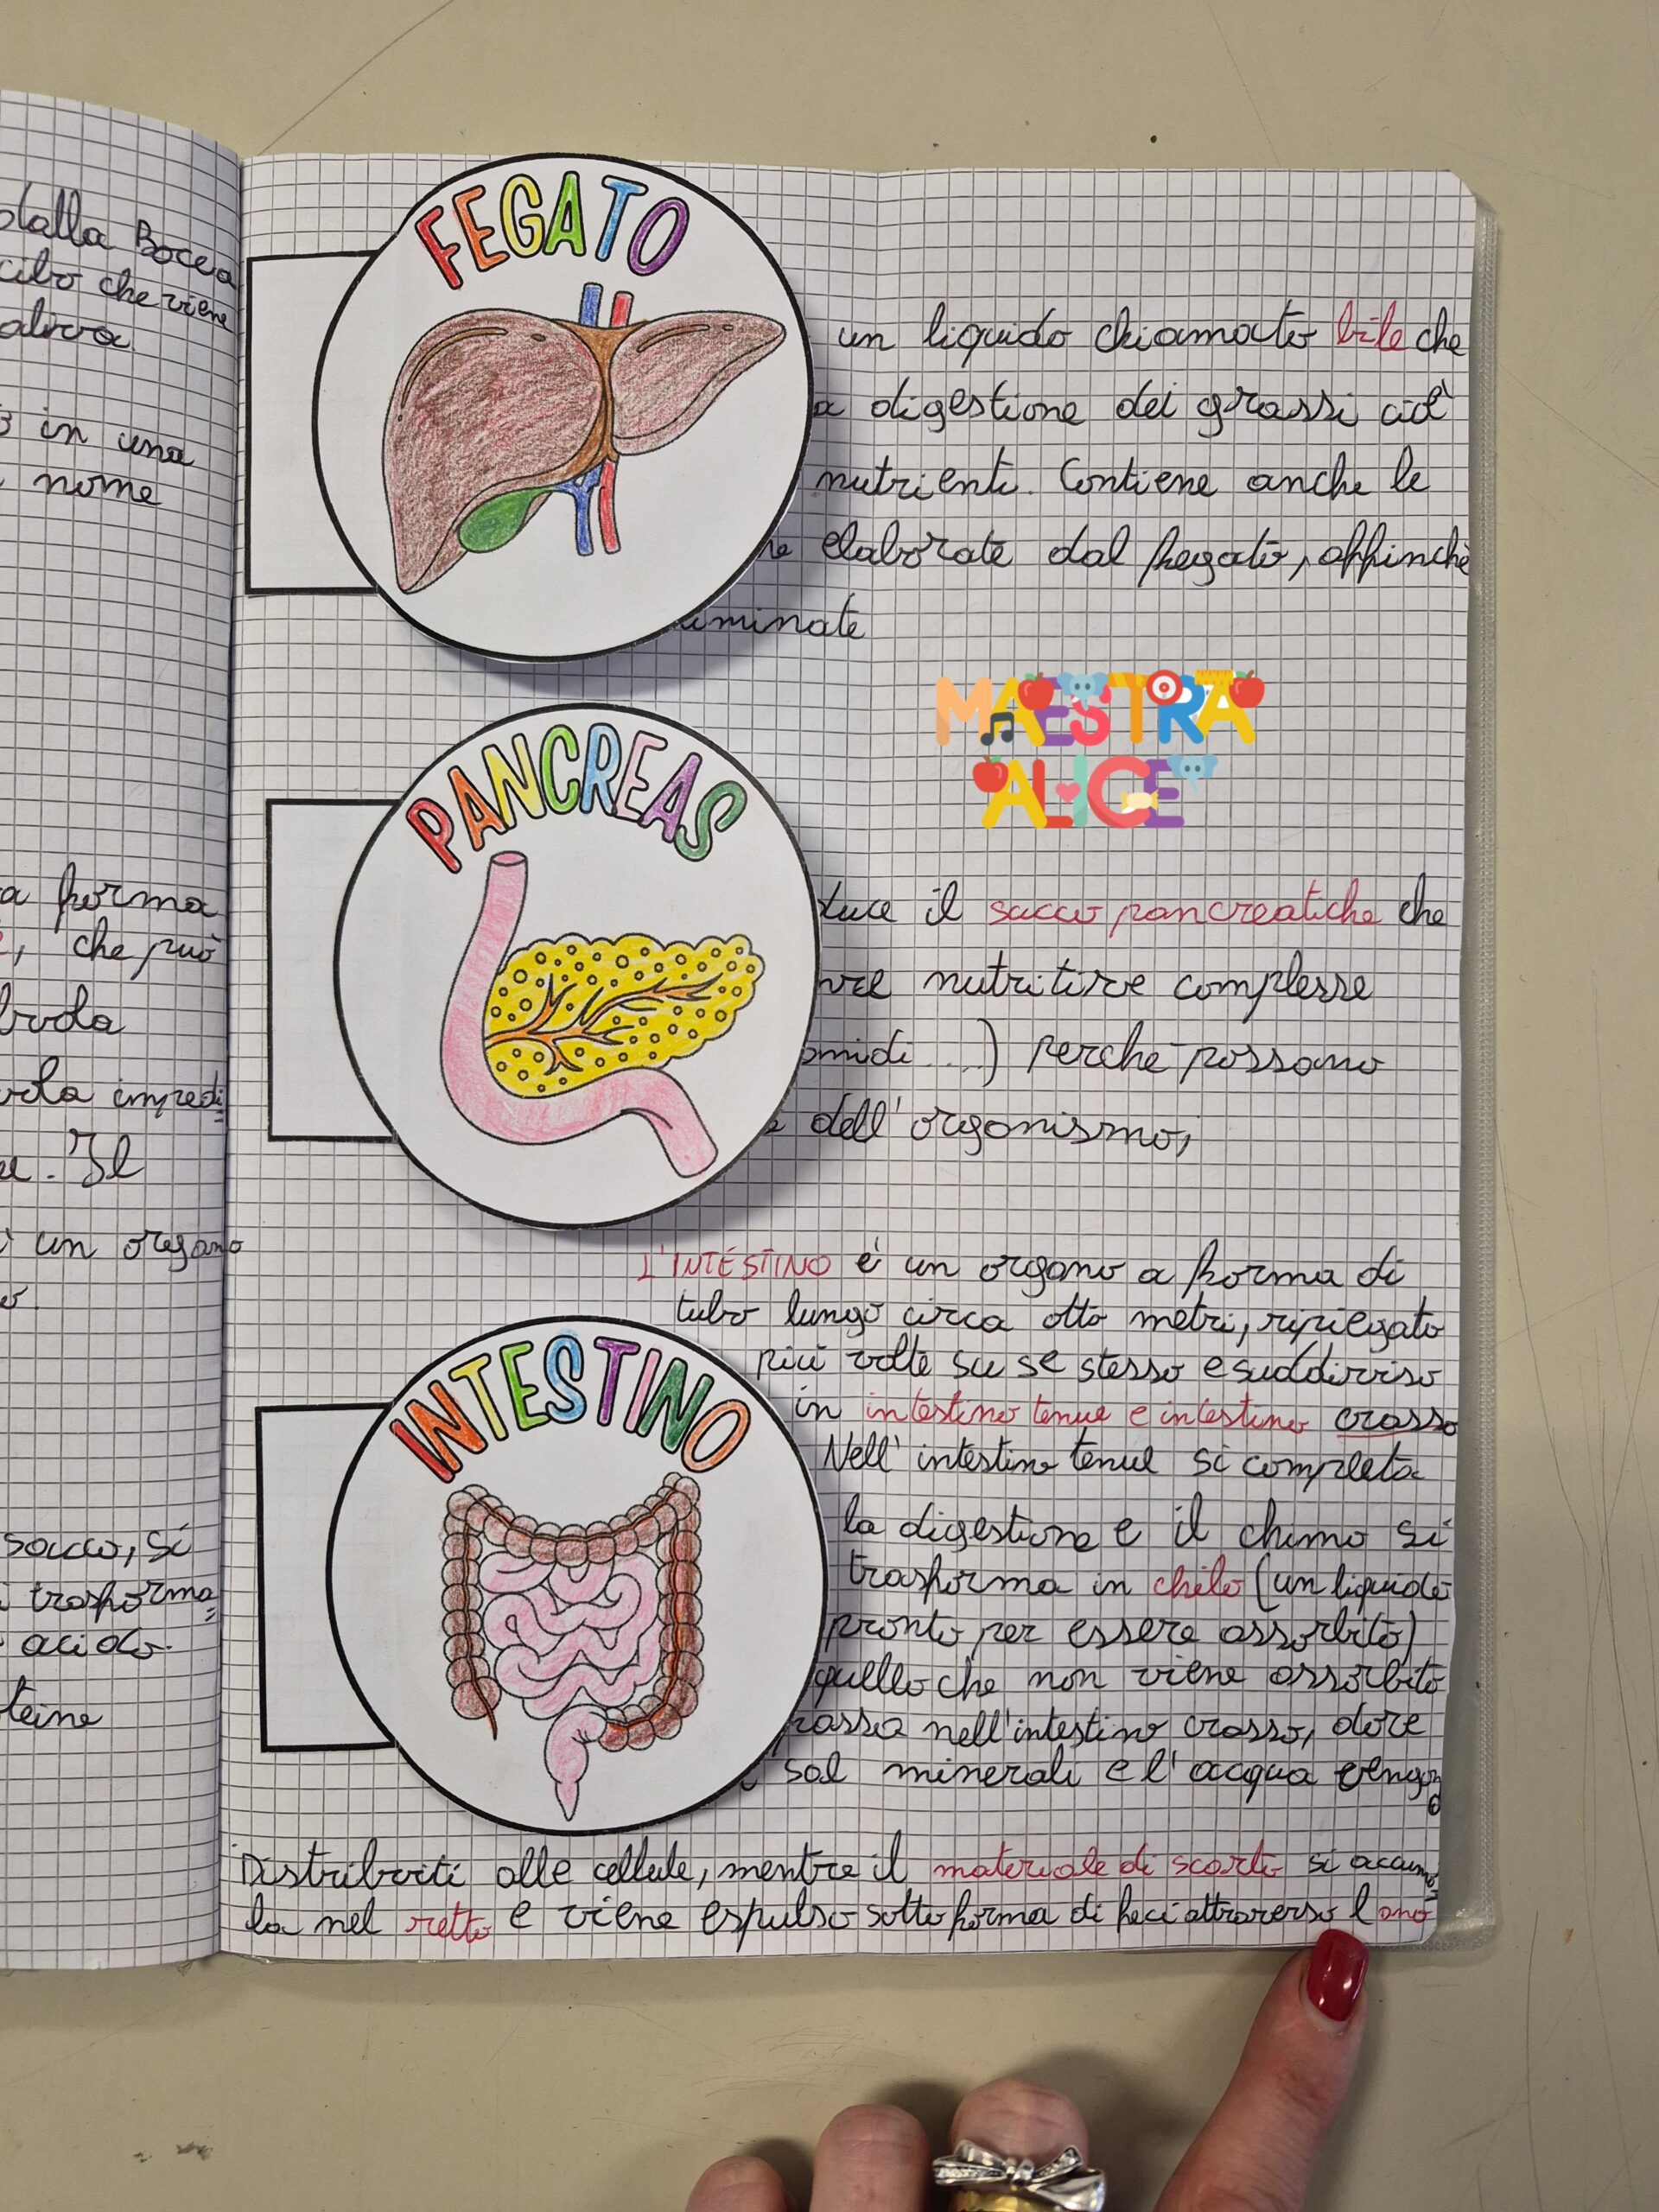 dalla Bocca
cibo che viene
in una
nome
a forma
, che può
impredi
. Il
un organo
sacco, si
trasforma
acido.
FEGATO
un liquido chiamato bile che
a digestione dei grassi cioè
nutrienti. Contiene anche le
elaborate dal fegato, affinchè
iminate
MAESTRA
ALICE
PANCREAS
duce il succo pancreatiche che
nutritive complesse
omidi ....) perche possano
dell'organismo,
L'INTESTINO è un organo a forma di
tubo lungo circa otto metri, ripiegato
più volte su se stesso e suddiviso
in intestino tenue e intestino crasso
INTESTINO
Nell'intestino tenue si completa
la digestione e il chimo si
trasforma in chilo (un liquido
pronto per essere assorbito)
quello che non viene assorbito
passa nell'intestino crasso, dove
i sal minerali e l'acqua vengono
Distribuiti alle cellule, mentre il materiale di scarto si accumu
la nel retto e viene espulso sotto forma di feci attraverso l ano